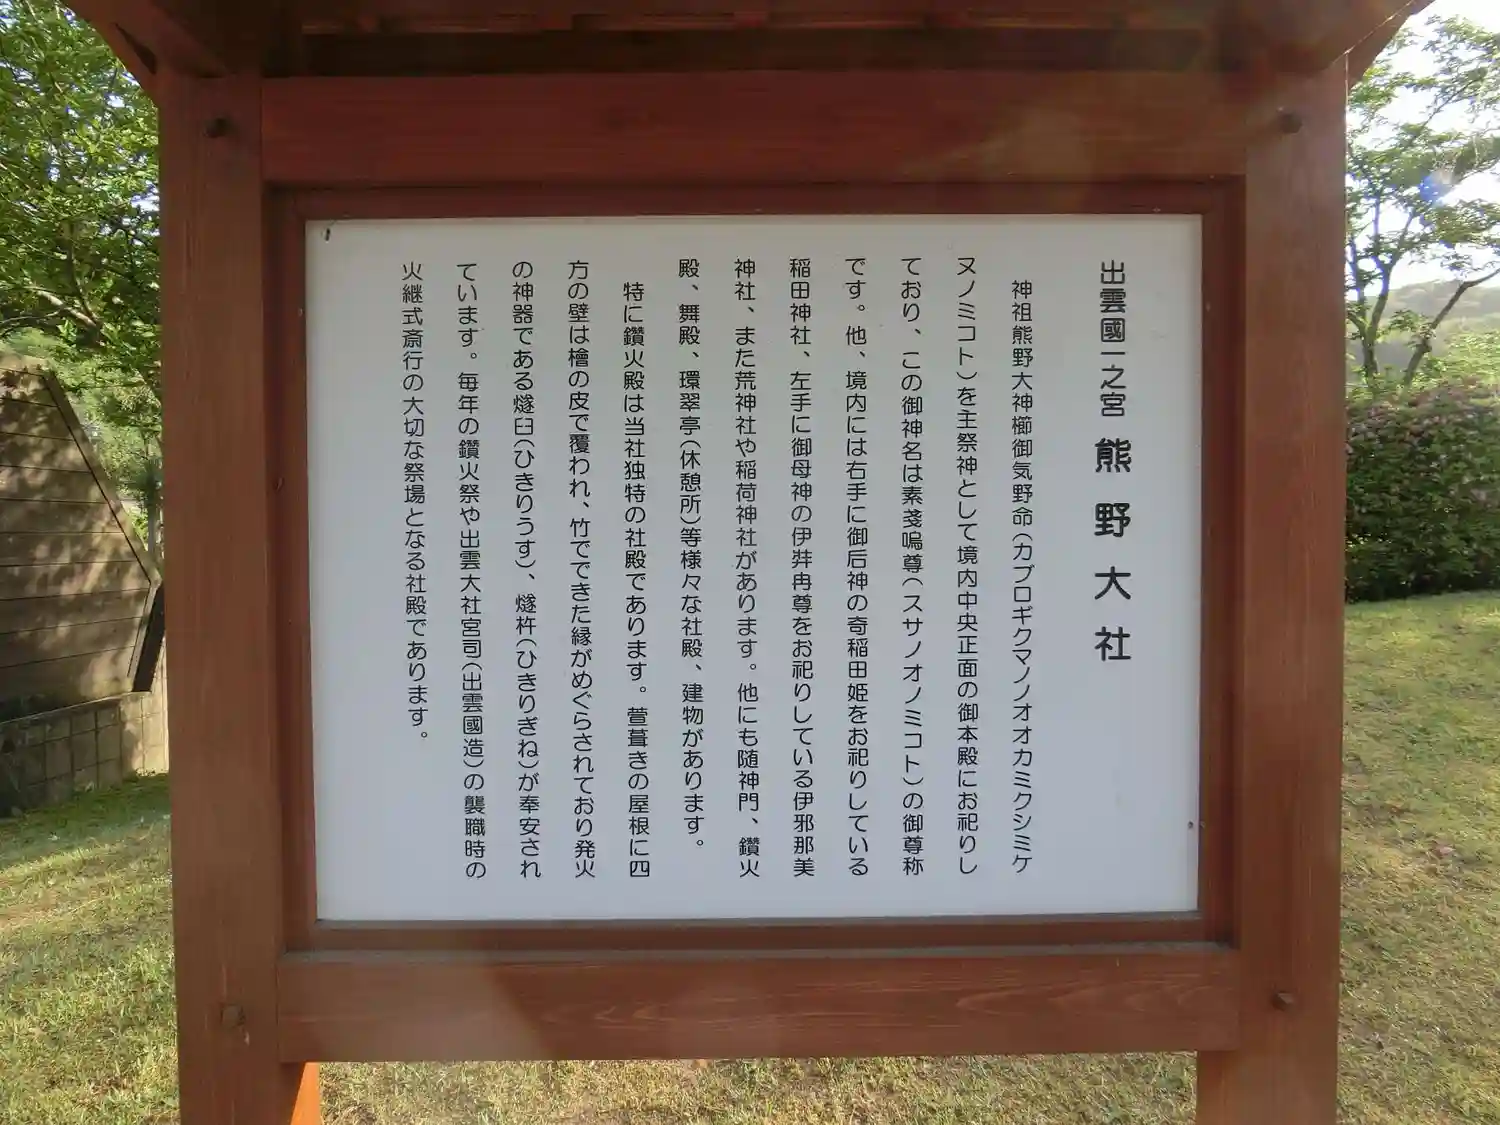 出雲國一之宮 熊野大社
神祖熊野大神櫛御気野命(カブロギクマノノオオカミクシミケ
ヌノミコト)を主祭神として境内中央正面の御本殿にお祀りし
ており、この御神名は素戔嗚尊(スサノオノミコト)の御尊称
です。他、境内には右手に御后神の奇稲田姫をお祀りしている
稲田神社、左手に御母神の伊弉冉尊をお祀りしている伊邪那美
神社、また荒神社や稲荷神社があります。他にも随神門、鑽火
殿、舞殿、環翠亭(休憩所)等様々な社殿、建物があります。
特に鑽火殿は当社独特の社殿であります。萱葺きの屋根に四
方の壁は檜の皮で覆われ、竹でできた縁がめぐらされており発火
の神器である燧臼(ひきりうす)、燧杵(ひきりぎね)が奉安され
ています。毎年の鑽火祭や出雲大社宮司(出雲國造)の襲職時の
火継式斎行の大切な祭場となる社殿であります。